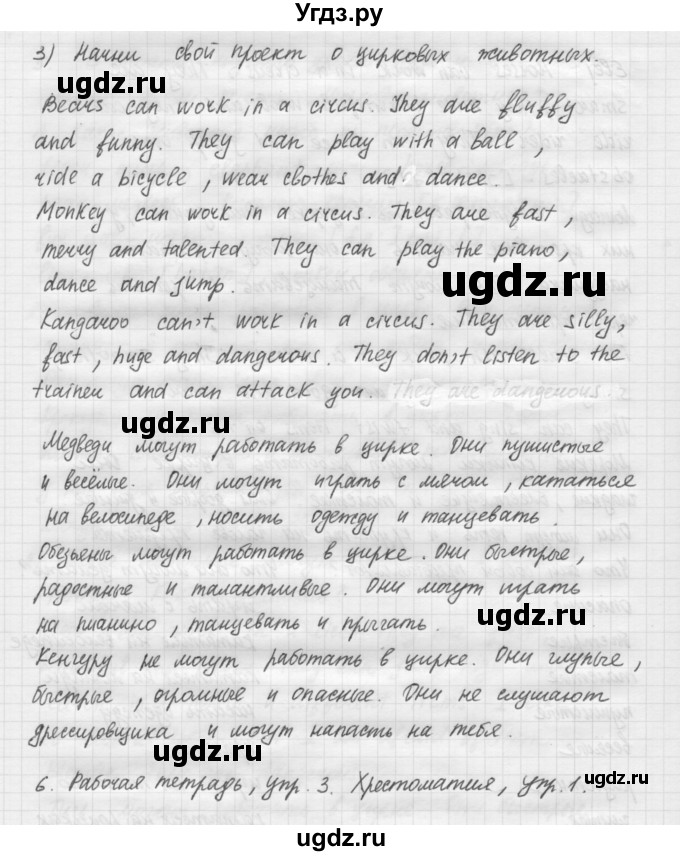 Угдз.ру
3) Начни свой проект о цирковых животных.
ugdz.ru
Bears can work in a circus. They are fluffy
and funny. They can play with a ball,
ride a bicycle, wear clothes and dance.
Monkey can work in a circus. They are fast,
merry and talented. They can play the piano,
ugdz.ru
dance and jump.
Kangaroo can't work in a circus. They are silly,
fast, huge and dangerous. They don't listen to the
trainer and can attack you. They are dangerous.
ugdz.ru
Медведи могут работать в цирке. Они пушистые
и весёлые. Они могут играть с мячом, кататься
на велосипеде, носить одежду и танцевать.
Обезьены могут работать в цирке. Они быстрые,
радостные и талантливые. Они могут играть
ugdz.ru
на пианино, танцевать и прыгать.
Кенгуру не могут работать в цирке. Они глупые,
быстрые, огромные и опасные. Они не слушают
дрессировщика и могут напасть на тебя.
ugdz.ru
6. Рабочая тетрадь, упр. 3. Хрестоматия, упр. 1.
ugdz.ru
ugdz.ru